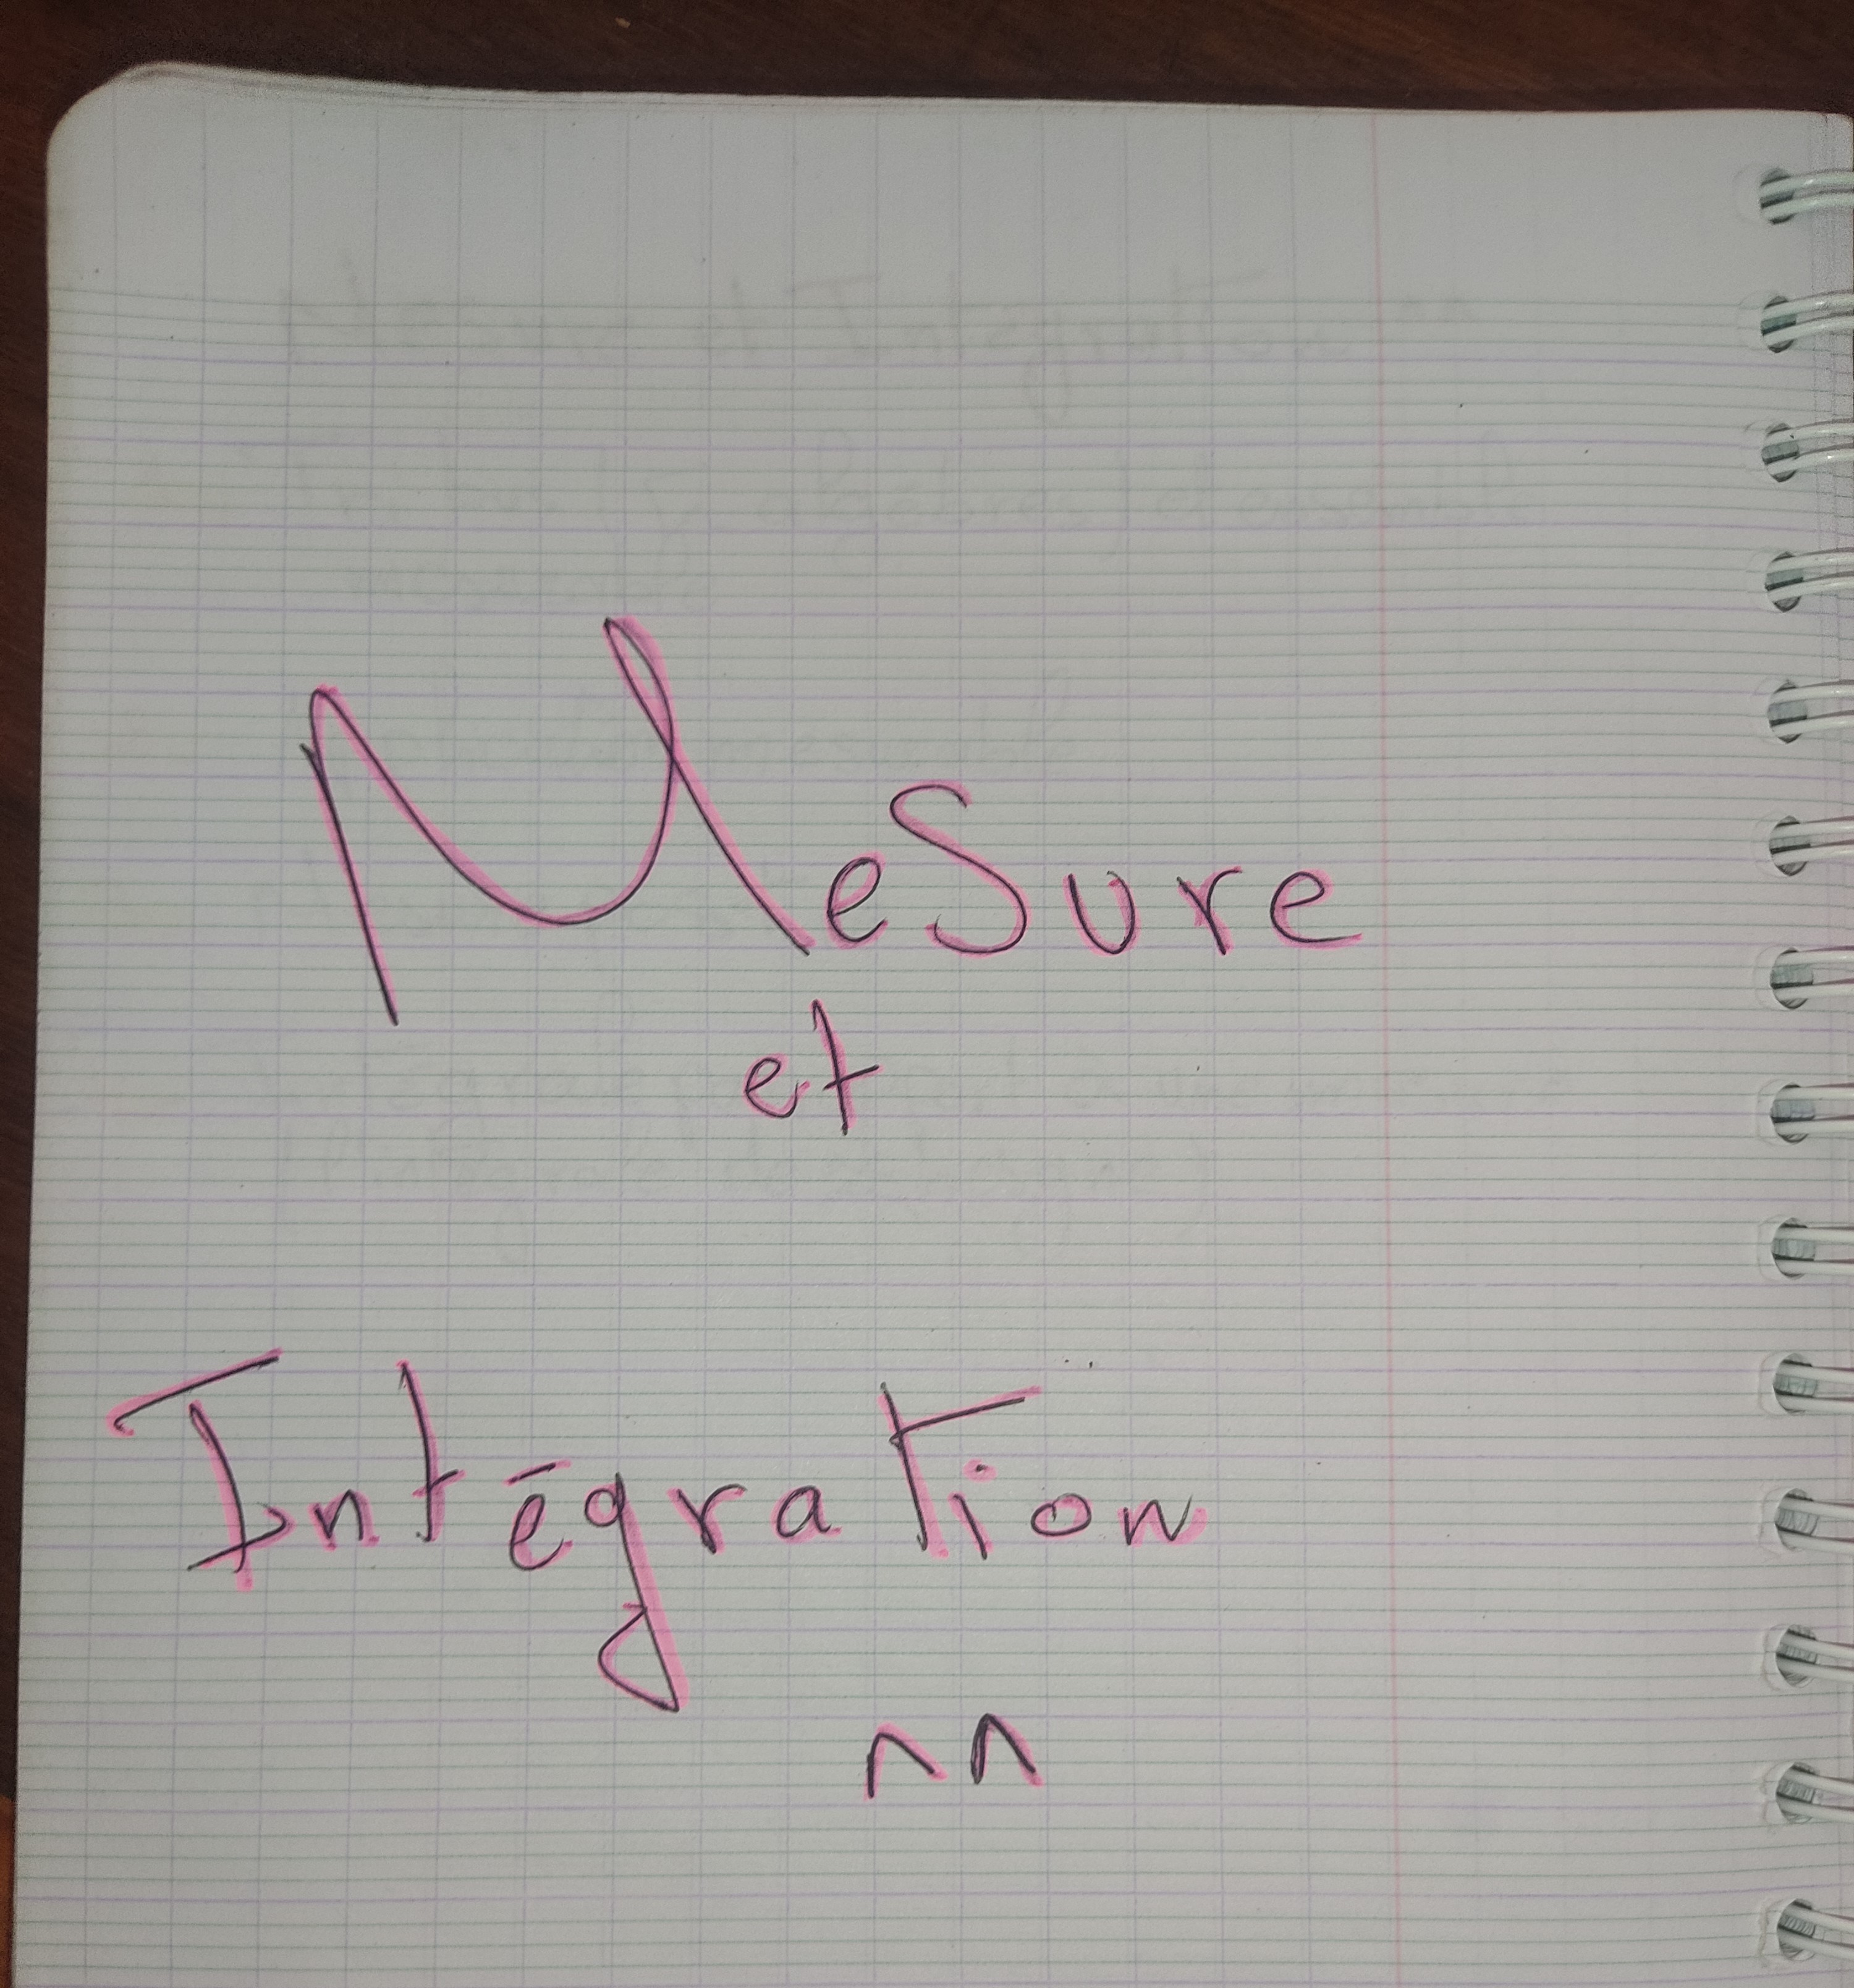 Mesure
et
Intégration
^^